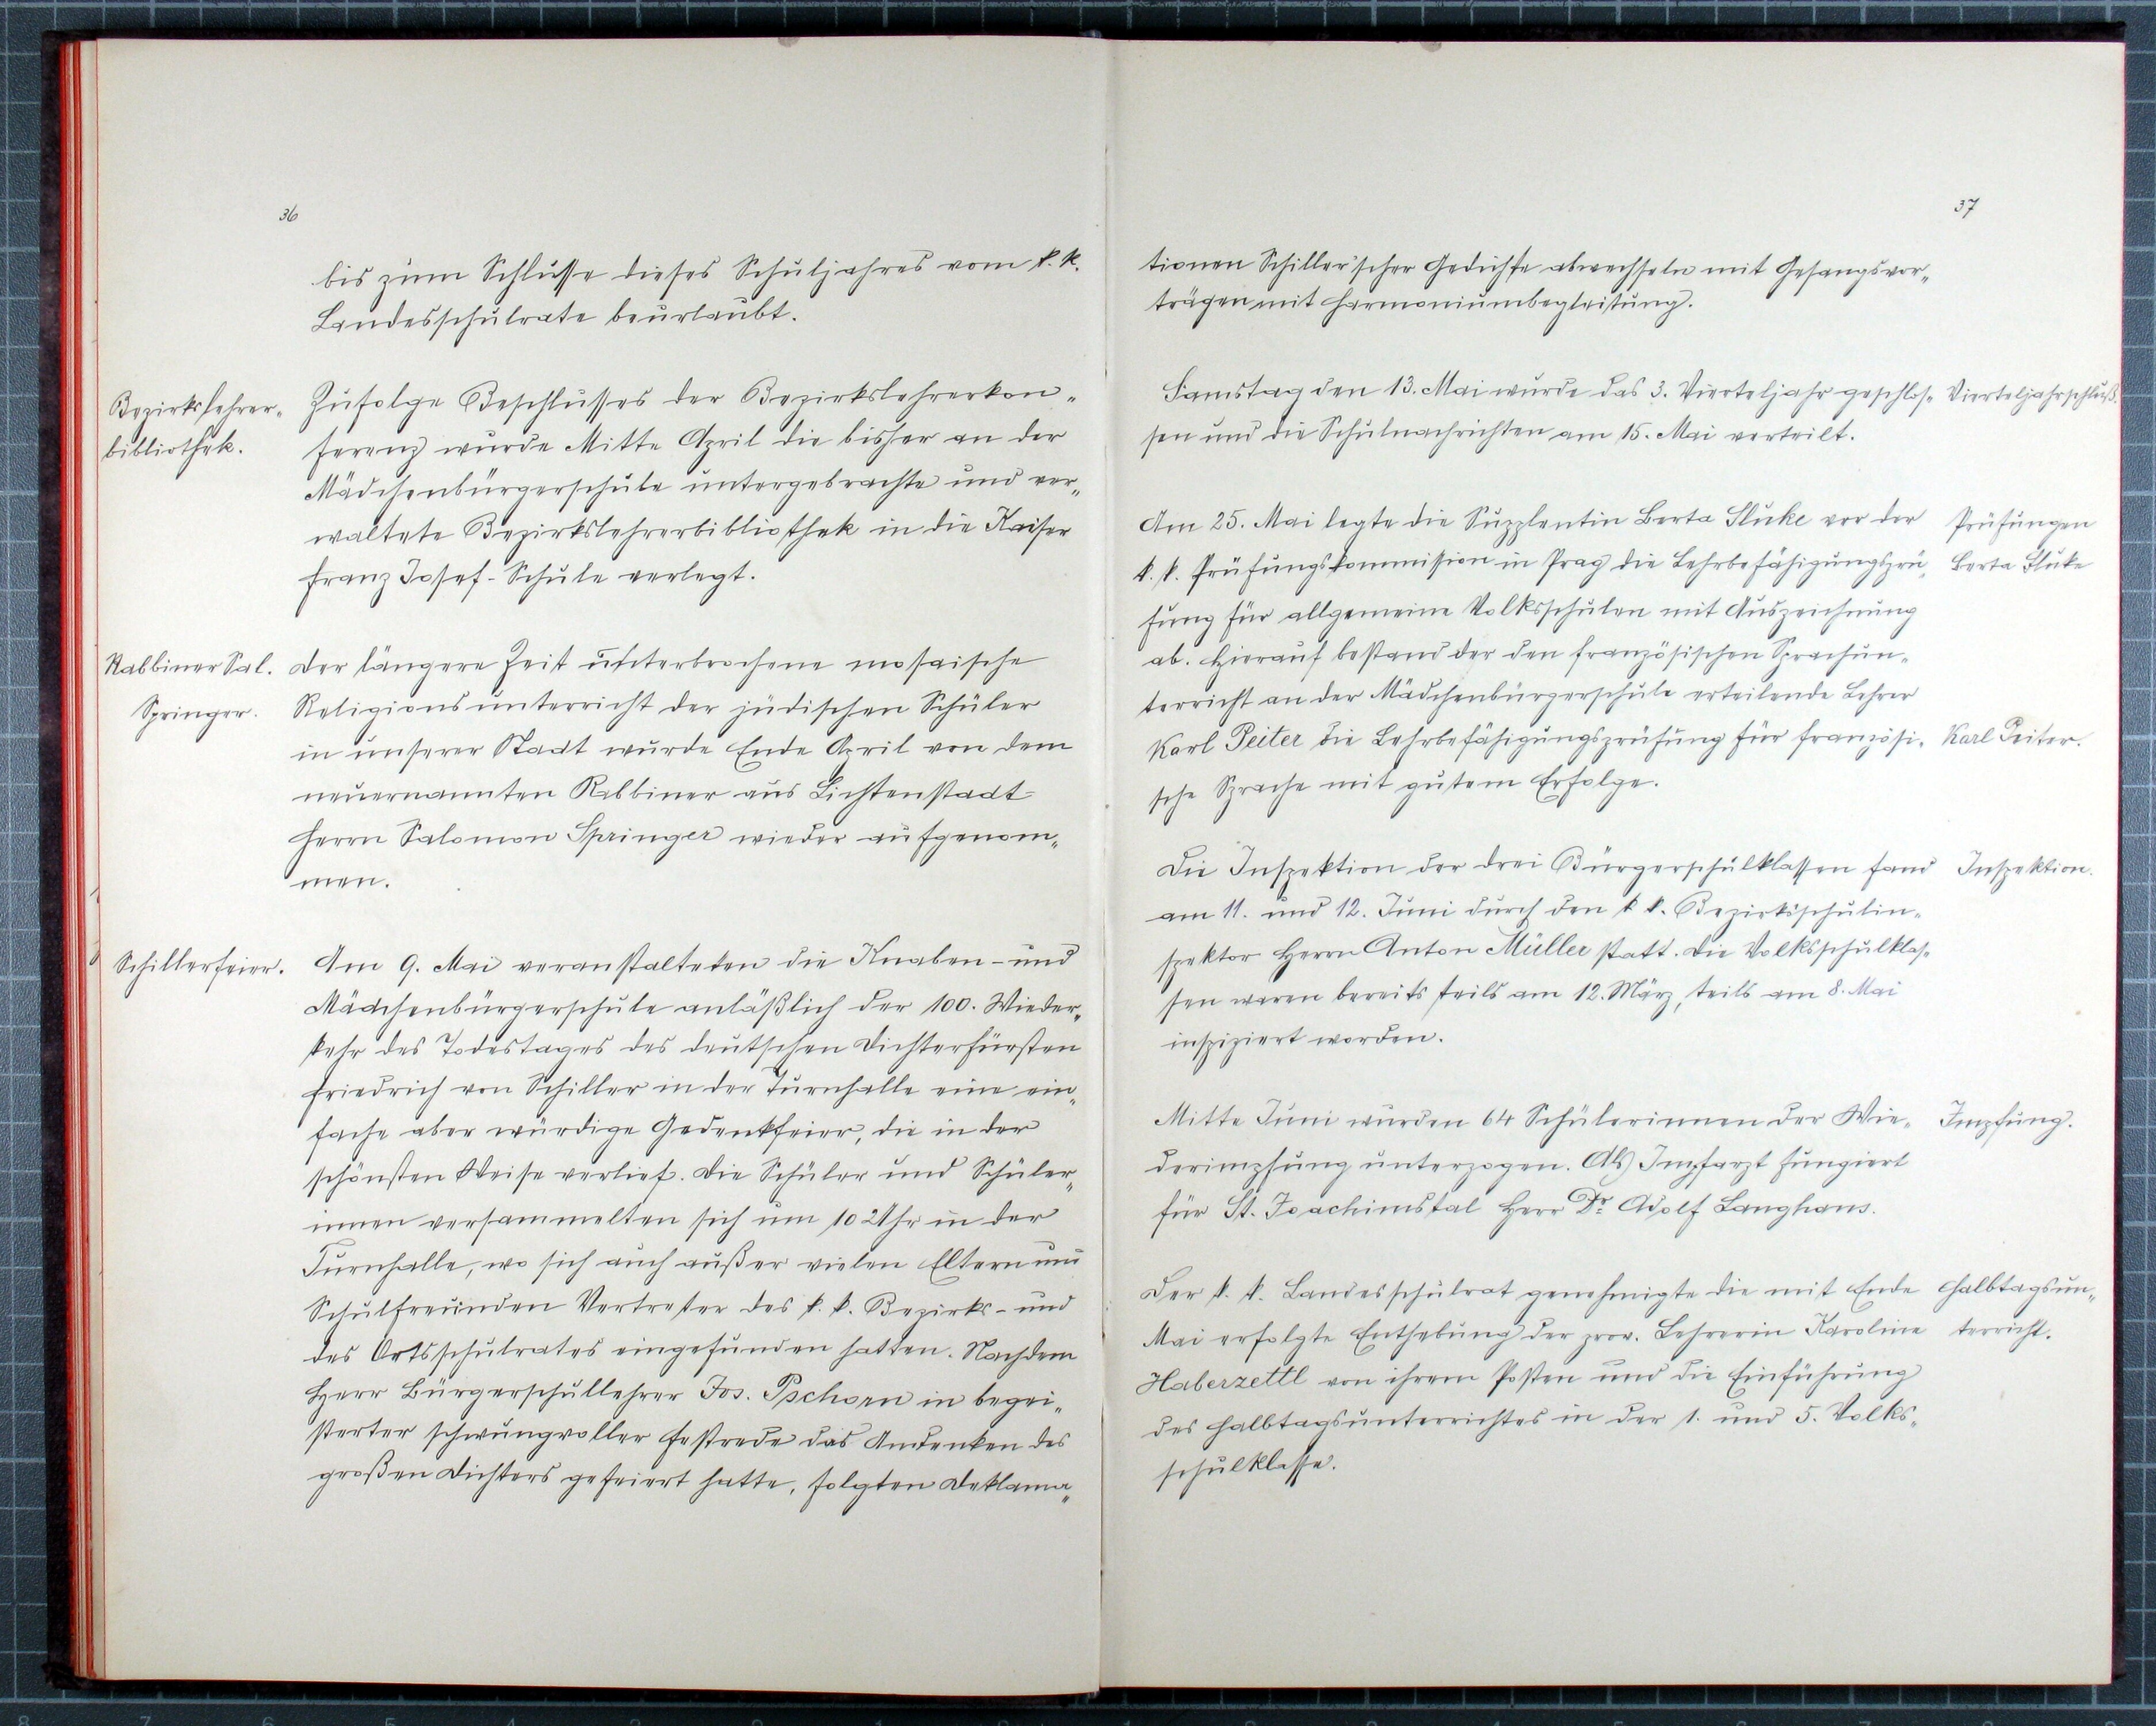 36
bis zum Schlusse dieses Schuljahres vom k. k.
Landesschulrate beurlaubt.
Bezirkslehrer-
bibliothek.
Zufolge Beschlusses der Bezirkslehrerkon-
ferenz wurde Mitte April die bisher an der
Mädchenbürgerschule untergebrachte und ver-
waltete Bezirkslehrerbibliothek in die Kaiser
Franz Josef-Schule verlegt.
Rabbiner Sal.
Springer.
Der längere Zeit unterbrochene mosaische
Religionsunterricht der jüdischen Schüler
in unserer Stadt wurde Ende April von dem
neuernannten Rabbiner aus Lichtenstadt
Herrn Salomon Springer wieder aufgenom-
men.
Schillerfeier.
Am 9. Mai veranstalteten die Knaben- und
Mädchenbürgerschule anläßlich der 100. Wieder-
kehr des Todestages des deutschen Dichterfürsten
Friedrich von Schiller in der Turnhalle eine ein-
fache aber würdige Gedenkfeier, die in der
schönsten Weise verlief. Die Schüler und Schüler-
innen versammelten sich um 10 Uhr in der
Turnhalle, wo sich auch außer vielen Eltern und
Schulfreunden Vertreter des k. k. Bezirks- und
des Ortsschulrates eingefunden hatten. Nachdem
Herr Bürgerschullehrer Jos. Pschorn in begei-
sterter schwungvoller Festrede das Andenken des
großen Dichters gefeiert hatte, folgten Deklama-
37
tionen Schiller'scher Gedichte abwechselnd mit Gesangsvor-
trägen mit Harmoniumbegleitung.
Samstag den 13. Mai wurde das 3. Vierteljahr geschlos-
sen und die Schulnachrichten am 15. Mai verteilt.
Vierteljahrschluß.
Am 25. Mai legte die Supplentin Berta Sluke vor der
k. k. Prüfungskommission in Prag die Lehrbefähigungsprü-
fung für allgemeine Volksschulen mit Auszeichnung
ab. Hierauf bestand der den französischen Sprachun-
terricht an der Mädchenbürgerschule erteilende Lehrer
Karl Peiter die Lehrbefähigungsprüfung für französi-
sche Sprache mit gutem Erfolge.
Prüfungen
Berta Sluke
Karl Peiter.
Die Inspektion der drei Bürgerschulklassen fand
am 11. und 12. Juni durch den k. k. Bezirksschulin-
spektor Herrn Anton Müller statt. Die Volksschulklas-
sen waren bereits teils am 12. März, teils am 8. Mai
inspiziert worden.
Inspektion.
Mitte Juni wurden 64 Schülerinnen der Wie-
derimpfung unterzogen. Als Impfarzt fungiert
für St. Joachimstal Herr Dr. Adolf Langhans.
Impfung.
Der k. k. Landesschulrat genehmigte die mit Ende
Mai erfolgte Enthebung der prov. Lehrerin Karoline
Haberzettl von ihrem Posten und die Einführung
des Halbtagsunterrichtes in der 1. und 5. Volks-
schulklasse.
Halbtagsun-
terricht.